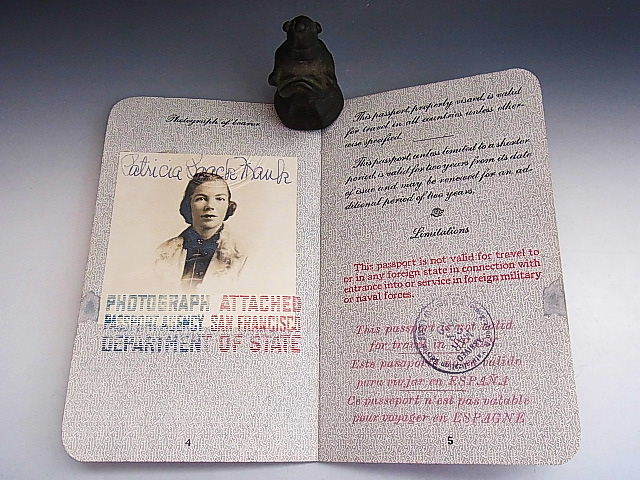 Photograph of bearer
Patricia Loack Frank
PHOTOGRAPH ATTACHED
PASSPORT AGENCY, SAN FRANCISCO
DEPARTMENT OF STATE
4
This passport properly visaed is valid
for travel in all countries unless other-
wise specified.
This passport, unless limited to a shorter
period, is valid for two years from its date
of issue and may be renewed for an ad-
ditional period of two years.
Limitations
This passport is not valid for travel to
or in any foreign state in connection with
entrance into or service in foreign military
or naval forces.
This passport is not valid
for travel in
Este pasaporte valido
para viajar en ESPAÑA
Ce passeport n'est pas valable
pour voyager en ESPAGNE
5